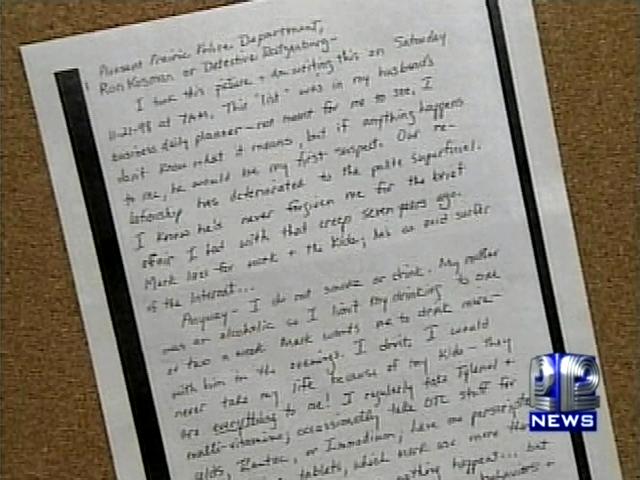 Pleasant Prairie Police Department,
Ron Kosman or Detective Ratzenburg-
I took this picture + am writing this on Saturday
11-21-98 at 7AM. This "list" was in my husband's
business daily planner-not meant for me to see, I
don't know what it means, but if anything happens
to me, he would be my first suspect. Our re-
lationship has deteriorated to the polite superficial.
I know he's never forgiven me for the brief
affair I had with that creep seven years ago.
Mark lives for work + the kids; he's an avid surfer
of the Internet...
Anyway- I do not smoke or drink. My mother
was an alcoholic so I limit my drinking to one
or two a week. Mark wants me to drink more-
with him in the evenings. I don't. I would
never take my life because of my kids - they
are everything to me! I regularly take Tylenol +
multi-vitamins; occassionally take OTC stuff for
colds, Zantac, or Immodium; have one prescription
tablets, which work use more than
anything happens... but
behaviors +
12
NEWS